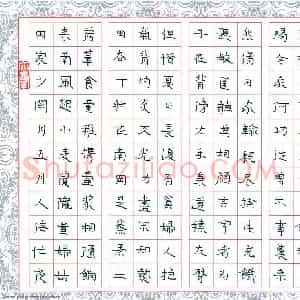 田家少閑月五月人倍忙夜
來南風起小麥覆隴黃婦姑
荷簞食童稚攜壺漿相隨餉
田去丁壯在南岡足蒸暑土
氣背灼炎天光力盡不知熱
但惜夏日長復有貧婦人抱
子在其旁右手秉遺穗左臂
懸敝筐聽其相顧言聞者為
悲傷家田輸稅盡拾此充飢
腸今我何功德曾不事農桑